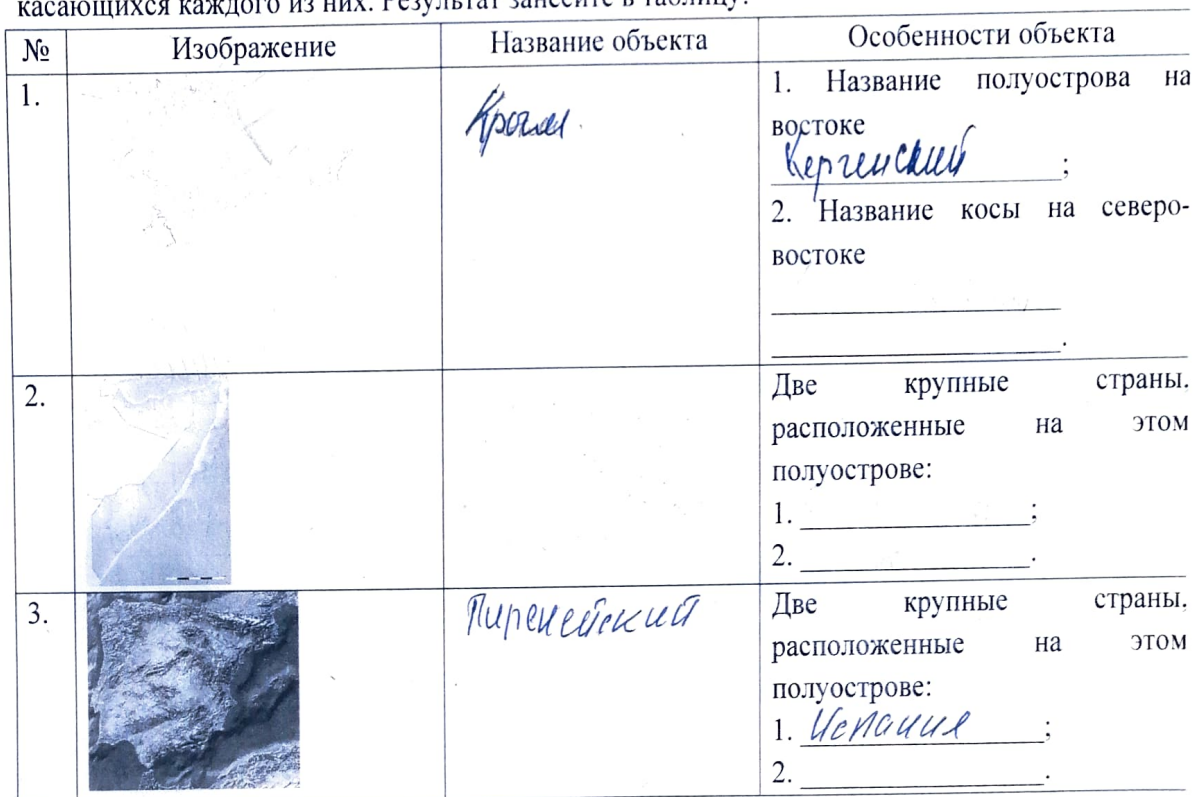 касающихся каждого из них. Результат занесите в таблицу.
№ Изображение Название объекта Особенности объекта
1. Крым. 1. Название полуострова на
востоке
Керченский ;
2. Название косы на северо-
востоке
.
2. Две крупные страны,
расположенные на этом
полуострове:
1. ;
2. .
3. Пиренейский Две крупные страны,
расположенные на этом
полуострове:
1. Испания ;
2. .